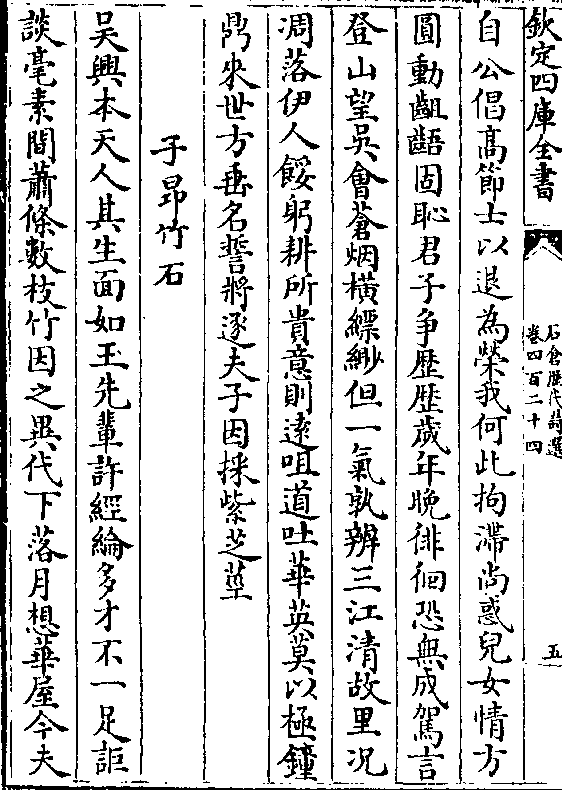 欽定四庫全書
石倉歷代詩選
卷四百二十四
五
自公倡高節士以退為榮我何此拘滯尚惑兒女情方
圓動齟齬固恥君子爭歴歴歲年晚徘徊恐無成駕言
登山望吳會蒼烟橫縹緲但一氣孰辨三江清故里况
凋落伊人餒躬耕所貴意則逺咀道吐華英莫以極鐘
鼎來世方垂名誓將逐夫子因採紫芝莖
子昂竹石
吳興本天人其生面如玉先輩許經綸多才不一足詎
談毫素間蕭條數枝竹因之異代下落月想華屋今夫